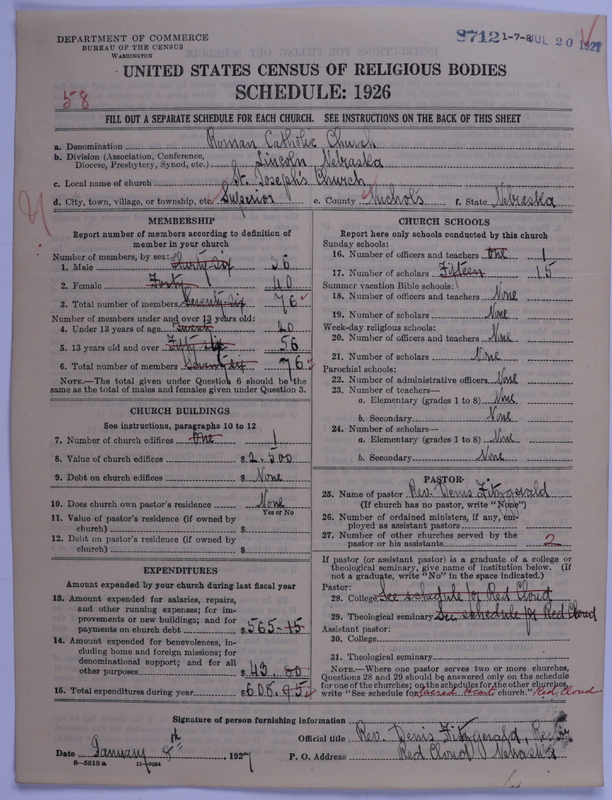 DEPARTMENT OF COMMERCE
BUREAU OF THE CENSUS
WASHINGTON
8712 1-7-2 JUL 20 1927
UNITED STATES CENSUS OF RELIGIOUS BODIES
58
SCHEDULE: 1926
FILL OUT A SEPARATE SCHEDULE FOR EACH CHURCH. SEE INSTRUCTIONS ON THE BACK OF THIS SHEET
a. Denomination Roman Catholic Church
b. Division (Association, Conference, Diocese, Presbytery, Synod, etc.) Lincoln Nebraska
c. Local name of church St. Joseph's Church
d. City, town, village, or township, etc. Superior e. County Nuchols f. State Nebraska
MEMBERSHIP
Report number of members according to definition of
member in your church
Number of members, by sex:
1. Male Thirty six 36
2. Female Forty 40
3. Total number of members Seventy six 76
Number of members under and over 13 years old:
4. Under 13 years of age 20
5. 13 years old and over Fifty six 56
6. Total number of members Seventy six 76
NOTE.—The total given under Question 6 should be the
same as the total of males and females given under Question 3.
CHURCH BUILDINGS
See instructions, paragraphs 10 to 12
7. Number of church edifices One 1
8. Value of church edifices $2.500
9. Debt on church edifices $ None
10. Does church own pastor's residence None
Yes or No
11. Value of pastor's residence (if owned by
church) $
12. Debt on pastor's residence (if owned by
church) $
EXPENDITURES
Amount expended by your church during last fiscal year
13. Amount expended for salaries, repairs,
and other running expenses; for im-
provements or new buildings; and for
payments on church debt $565-15
14. Amount expended for benevolences, in-
cluding home and foreign missions; for
denominational support; and for all
other purposes $43.80
15. Total expenditures during year $608.95
CHURCH SCHOOLS
Report here only schools conducted by this church
Sunday schools:
16. Number of officers and teachers One 1
17. Number of scholars Fifteen 15
Summer vacation Bible schools:
18. Number of officers and teachers None
19. Number of scholars None
Week-day religious schools:
20. Number of officers and teachers None
21. Number of scholars None
Parochial schools:
22. Number of administrative officers None
23. Number of teachers—
a. Elementary (grades 1 to 8) None
b. Secondary None
24. Number of scholars—
a. Elementary (grades 1 to 8) None
b. Secondary None
PASTOR
25. Name of pastor Rev. Denis Fitzgerald
(If church has no pastor, write "None")
26. Number of ordained ministers, if any, em-
ployed as assistant pastors
27. Number of other churches served by the
pastor or his assistants 2
If pastor (or assistant pastor) is a graduate of a college or
theological seminary, give name of institution below. (If
not a graduate, write "No" in the space indicated.)
Pastor:
28. College See schedule for Red Cloud
29. Theological seminary See schedule for Red Cloud
Assistant pastor:
30. College
31. Theological seminary
NOTE.—Where one pastor serves two or more churches,
Questions 28 and 29 should be answered only on the schedule
for one of the churches; on the schedules for the other churches
write "See schedule for Sacred Heart church." Red Cloud
Signature of person furnishing information
Official title Rev. Denis Fitzgerald,
Date January 8th, 1927 P. O. Address Red Cloud Nebraska
8-5519a